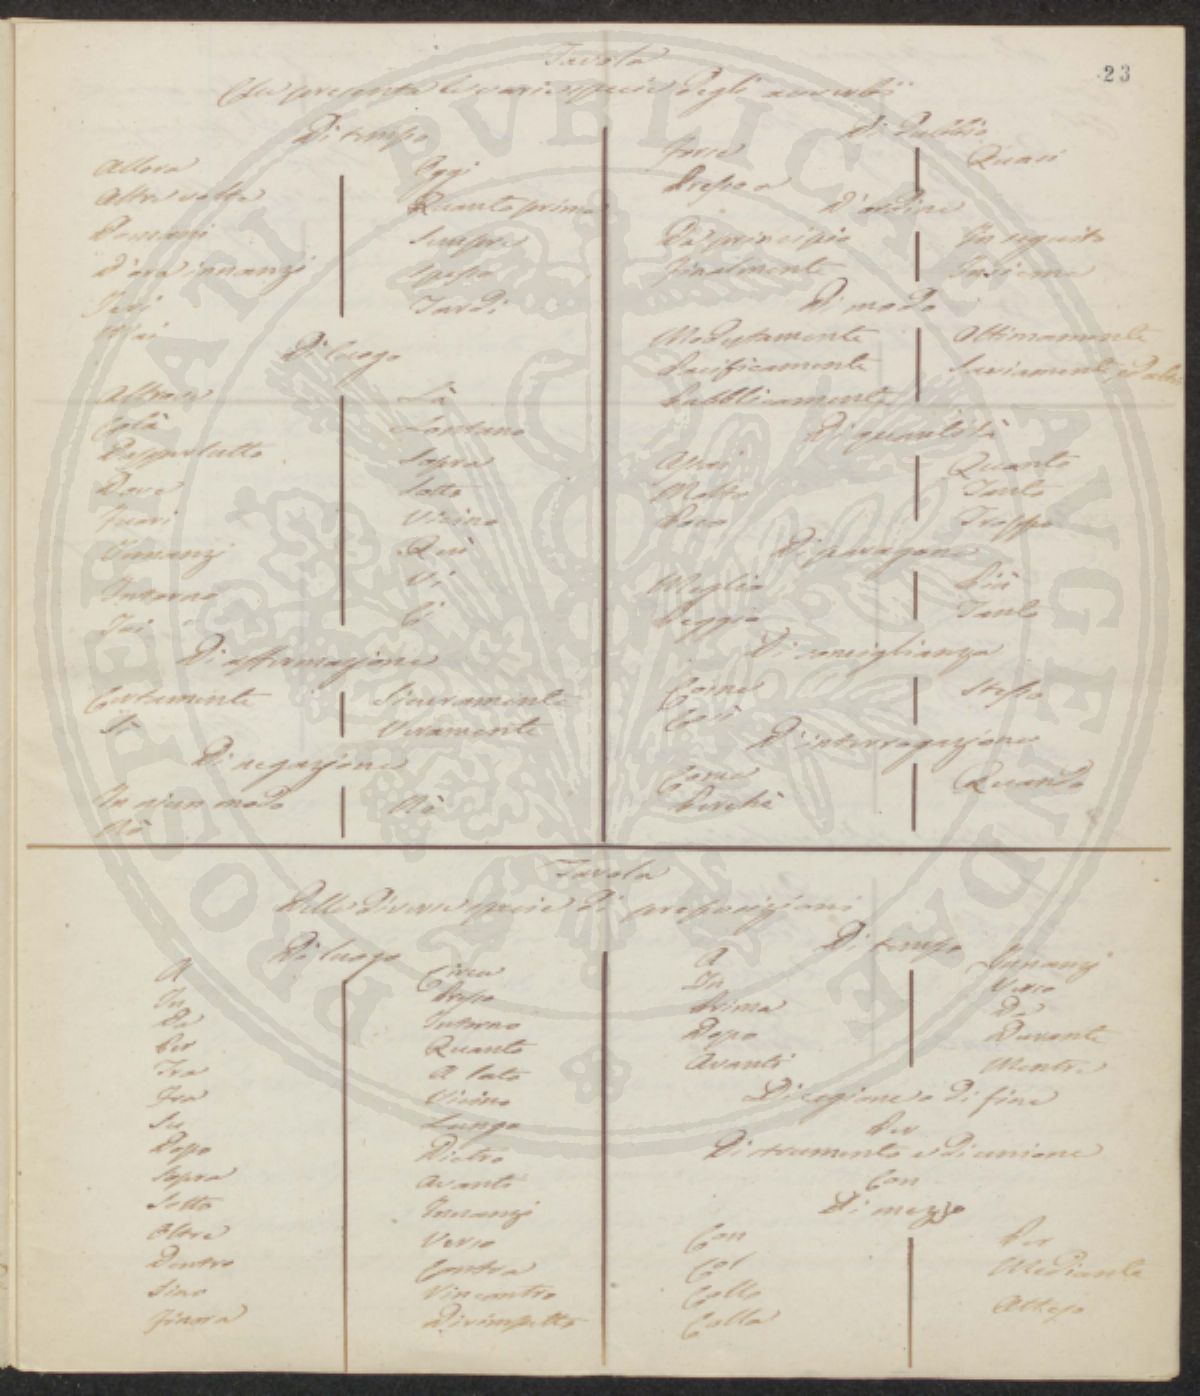 23
Tavola
Che presenta le varie specie degli avverbi
Di tempo
Allora
Altre volte
Domani
D'ora innanzi
Jeri
Mai
Oggi
Quanto prima
Sempre
Spesso
Tardi
Di luogo
Altrove
Colà
Dappertutto
Dove
Fuori
Innanzi
Intorno
Ivi
Là
Lontano
Sopra
Sotto
Vicino
Quì
Vi
Ci
Di affermazione
Certamente
Sì
Sicuramente
Veramente
Di negazione
In niun modo
Nò
Di dubbio
Forse
Presso a
Quasi
D'ordine
Da principio
Finalmente
In seguito
Insieme
Di modo
Modestamente
Pacificamente
Pubblicamente
Ottimamente
Saviamente
Di quantità
Assai
Molto
Poco
Quanto
Tanto
Troppo
Di paragone
Meglio
Peggio
Più
Tanto
Di somiglianza
Come
Così
Stesso
D'interrogazione
Come
Perchè
Quando
Tavola
Delle diverse specie di preposizioni
Di luogo
A
In
Da
Per
Tra
Fra
Su
Dopo
Sopra
Sotto
Oltre
Dentro
Sino
Finora
Circa
Presso
Intorno
Quanto
A lato
Vicino
Lungo
Dietro
Avanti
Innanzi
Verso
Contra
Vincontro
Dirimpetto
Di tempo
A
In
Prima
Dopo
Avanti
Innanzi
Verso
Da
Durante
Mentre
Di cagione o di fine
Per
Di strumento e di unione
Con
Di mezzo
Con
Col
Collo
Colla
Per
Mediante
Atteso
PROPRIETATI PVBLICAE AVGENDAE